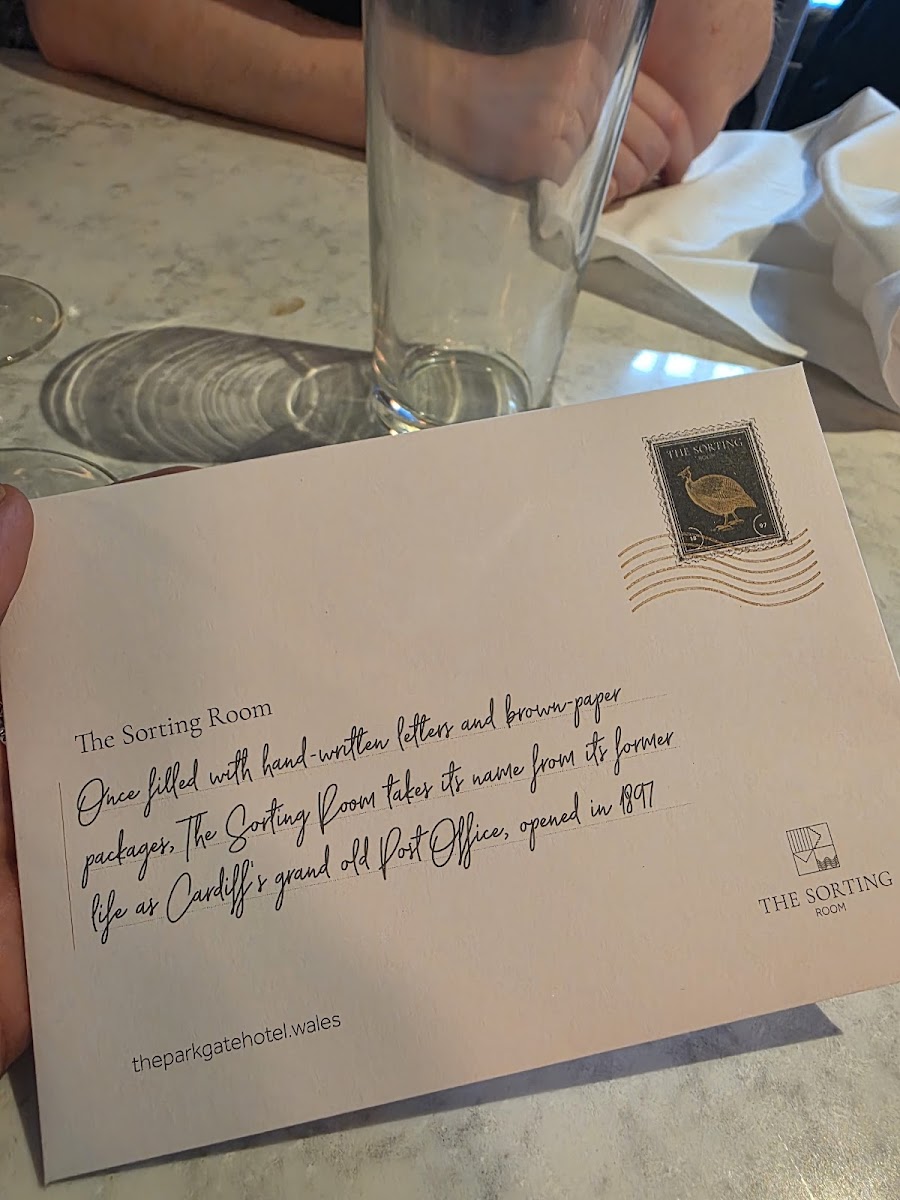 THE SORTING
ROOM
18 97
The Sorting Room
Once filled with hand-written letters and brown-paper
packages, The Sorting Room takes its name from its former
life as Cardiff's grand old Post Office, opened in 1897
THE SORTING
ROOM
theparkgatehotel.wales